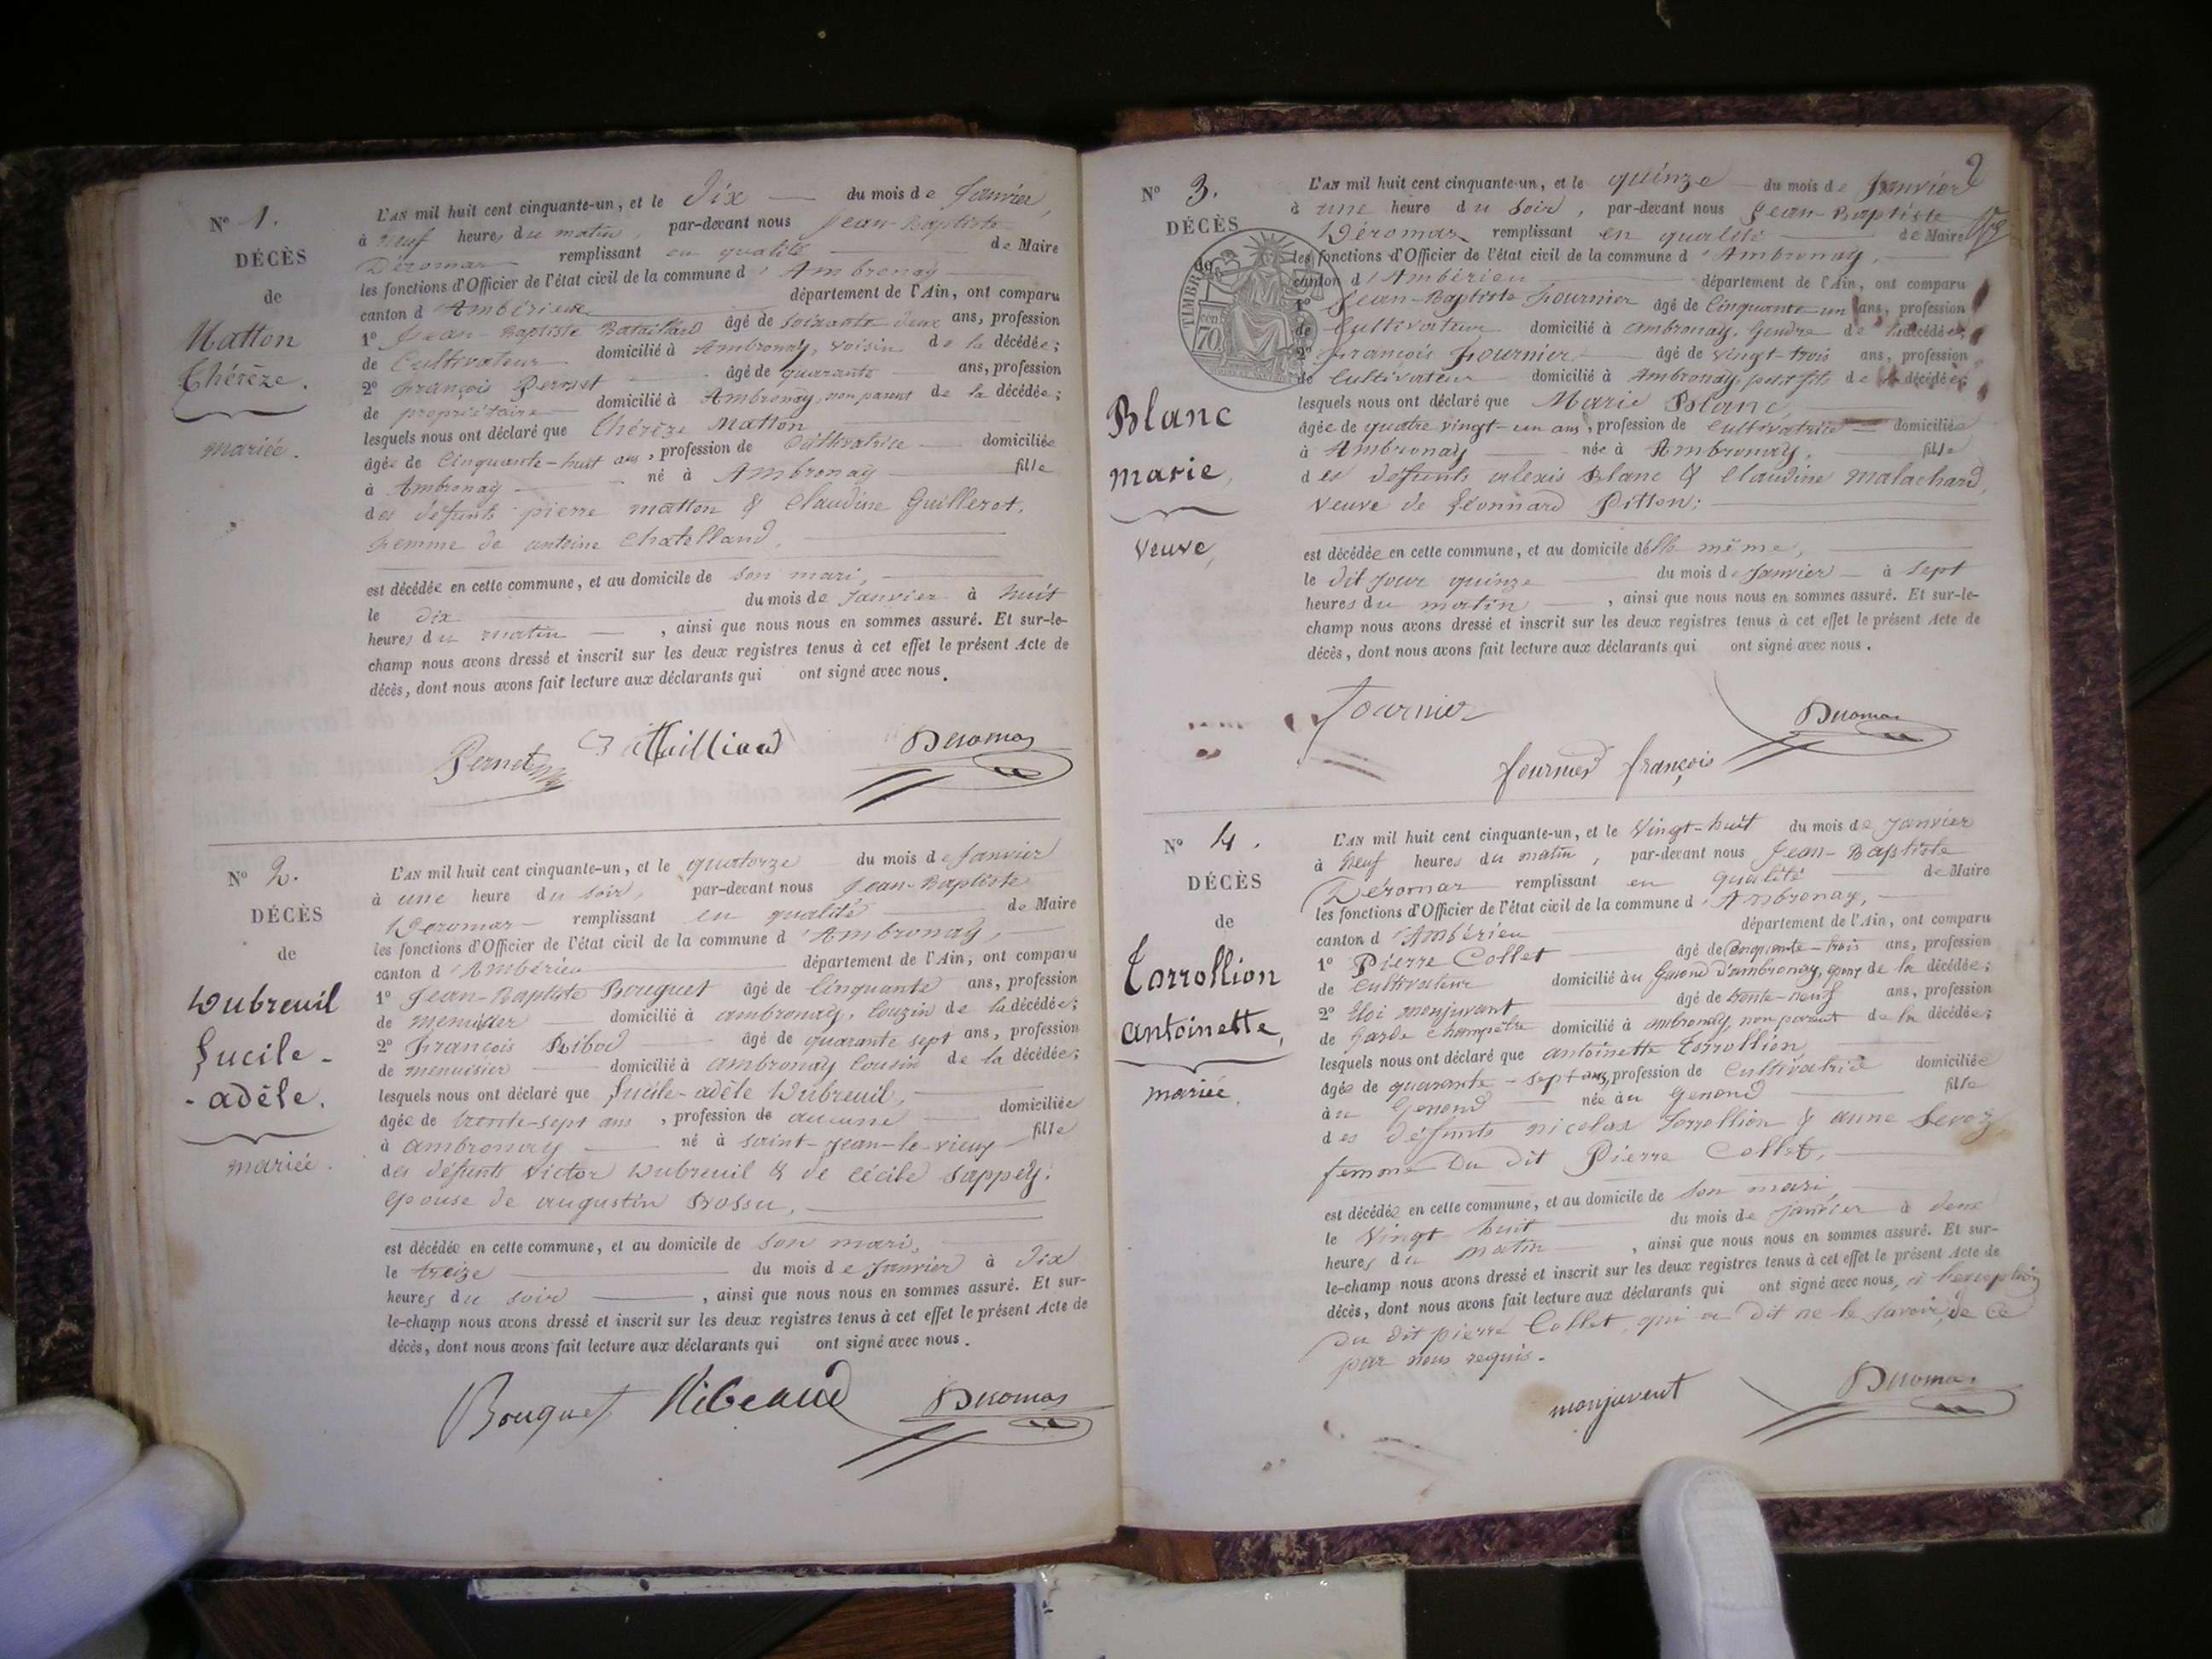 N° 1.
DÉCÈS
de
Matton
Thérèze.
mariée.
L'AN mil huit cent cinquante-un, et le Dix du mois de Janvier,
à neuf heures du matin, par-devant nous Jean-Baptiste
Déromas remplissant en qualité de Maire
les fonctions d'Officier de l'état civil de la commune d'Ambronay
canton d'Ambérieu département de l'Ain, ont comparu
1° Jean-Baptiste Bataillard âgé de soixante deux ans, profession
de Cultivateur domicilié à Ambronay, voisin de la décédée;
2° François Pernet âgé de quarante ans, profession
de propriétaire domicilié à Ambronay, non parent de la décédée;
lesquels nous ont déclaré que Thérèze Matton
âgée de Cinquante-huit ans, profession de Cultivatrice domiciliée
à Ambronay né à Ambronay fille
des défunts pierre matton & Claudine Guillerot,
femme de antoine Chatelland,
est décédée en cette commune, et au domicile de son mari,
le dix du mois de Janvier à huit
heures du matin, ainsi que nous nous en sommes assuré. Et sur-le-
champ nous avons dressé et inscrit sur les deux registres tenus à cet effet le présent Acte de
décès, dont nous avons fait lecture aux déclarants qui ont signé avec nous.
Pernet Deromas
N° 2.
DÉCÈS
de
Dubreuil
Lucile-
-adèle.
mariée.
L'AN mil huit cent cinquante-un, et le quatorze du mois de Janvier
à une heure du soir, par-devant nous Jean-Baptiste
Deromas remplissant en qualité de Maire
les fonctions d'Officier de l'état civil de la commune d'Ambronay,
canton d'Ambérieu département de l'Ain, ont comparu
1° Jean-Baptiste Bouquet âgé de Cinquante ans, profession
de menuisier domicilié à ambronay, Couzin de la décédée;
2° François Ribod âgé de quarante sept ans, profession
de menuisier domicilié à ambronay Cousin de la décédée;
lesquels nous ont déclaré que Lucile-adèle Dubreuil,
âgée de trente-sept ans, profession de aucune domiciliée
à ambronay né à saint-Jean-le-vieux fille
des défunts Victor Dubreuil & de Cécile Sappey.
Epouse de augustin Bossu,
est décédée en cette commune, et au domicile de son mari,
le treize du mois de Janvier à dix
heures du soir, ainsi que nous nous en sommes assuré. Et sur-
le-champ nous avons dressé et inscrit sur les deux registres tenus à cet effet le présent Acte de
décès, dont nous avons fait lecture aux déclarants qui ont signé avec nous.
Bouquet Ribeaud Deromas
2
N° 3.
DÉCÈS
de
TIMBRE
70
Blanc
marie,
Veuve,
L'AN mil huit cent cinquante-un, et le quinze du mois de Janvier
à une heure du soir, par-devant nous Jean-Baptiste
Déromas remplissant en qualité de Maire
les fonctions d'Officier de l'état civil de la commune d'Ambronay,
canton d'Ambérieu département de l'Ain, ont comparu
1° Jean-Baptiste Fournier âgé de Cinquante un ans, profession
de Cultivateur domicilié à ambronay, Gendre de la décédée;
2° François Fournier âgé de vingt-trois ans, profession
de Cultivateur domicilié à Ambronay, petit fils de la décédée;
lesquels nous ont déclaré que Marie Blanc,
âgée de quatre vingt-un ans, profession de Cultivatrice domiciliée
à Ambronay née à Ambronay, fille
des défunts alexis Blanc & Claudine malachard,
veuve de Léonnard Pitton;
est décédée en cette commune, et au domicile d'elle même,
le dit jour quinze du mois de Janvier à sept
heures du matin, ainsi que nous nous en sommes assuré. Et sur-le-
champ nous avons dressé et inscrit sur les deux registres tenus à cet effet le présent Acte de
décès, dont nous avons fait lecture aux déclarants qui ont signé avec nous.
Fournier Deromas
fournier françois
N° 4.
DÉCÈS
de
Torrollion
antoinette,
mariée.
L'AN mil huit cent cinquante-un, et le Vingt-huit du mois de Janvier
à neuf heures du matin, par-devant nous Jean-Baptiste
Déromas remplissant en qualité de Maire
les fonctions d'Officier de l'état civil de la commune d'Ambronay,
canton d'Ambérieu département de l'Ain, ont comparu
1° Pierre Collet âgé de Cinquante-trois ans, profession
de Cultivateur domicilié au Genoud d'ambronay, époux de la décédée;
2° Eloi monjuvant âgé de trente-neuf ans, profession
de Garde Champêtre domicilié à ambronay, non parent de la décédée;
lesquels nous ont déclaré que antoinette Torrollion
âgée de quarante-sept ans, profession de Cultivatrice domiciliée
au Genoud née au Genoud fille
des défunts nicolas Torrollion & anne Levoz,
femme Du dit Pierre Collet,
est décédée en cette commune, et au domicile de son mari,
le Vingt huit du mois de Janvier à deux
heures du matin, ainsi que nous nous en sommes assuré. Et sur-
le-champ nous avons dressé et inscrit sur les deux registres tenus à cet effet le présent Acte de
décès, dont nous avons fait lecture aux déclarants qui ont signé avec nous, à l'exception
Du dit pierre Collet, qui a dit ne le savoir, de ce
par nous requis.
monjuvent Deromas